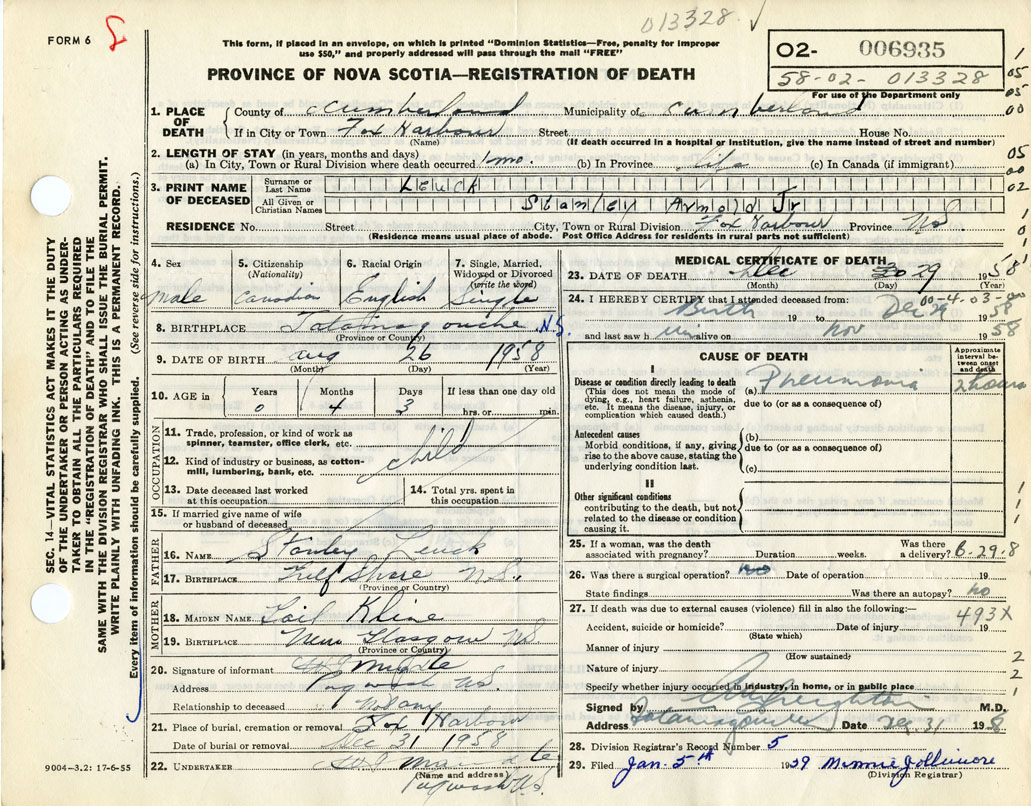 013328 ✓
FORM 6
This form, if placed in an envelope, on which is printed "Dominion Statistics—Free, penalty for improper
use $50," and properly addressed will pass through the mail "FREE"
PROVINCE OF NOVA SCOTIA—REGISTRATION OF DEATH
02- 006935
58-02- 013328
For use of the Department only
1. PLACE OF DEATH
County of Cumberland Municipality of Cumberland
If in City or Town Fox Harbour Street House No.
(Name) (If death occurred in a hospital or institution, give the name instead of street and number)
2. LENGTH OF STAY (in years, months and days)
(a) In City, Town or Rural Division where death occurred 1 mo. (b) In Province life (c) In Canada (if immigrant)
3. PRINT NAME OF DECEASED
Surname or Last Name LEUCK
All Given or Christian Names Stanley Arnold Jr
RESIDENCE No. Street City, Town or Rural Division Fox Harbour Province N.S.
(Residence means usual place of abode. Post Office Address for residents in rural parts not sufficient)
4. Sex 5. Citizenship (Nationality) 6. Racial Origin 7. Single, Married, Widowed or Divorced (write the word)
Male Canadian English Single
8. BIRTHPLACE Tatamagouche N.S.
(Province or Country)
9. DATE OF BIRTH Aug 26 1958
(Month) (Day) (Year)
10. AGE in Years Months Days If less than one day old
0 4 3 hrs. or min.
OCCUPATION
11. Trade, profession, or kind of work as spinner, teamster, office clerk, etc.
child
12. Kind of industry or business, as cotton-mill, lumbering, bank, etc.
13. Date deceased last worked at this occupation
14. Total yrs. spent in this occupation
15. If married give name of wife or husband of deceased
FATHER
16. NAME Stanley Leuck
17. BIRTHPLACE Gulf Shore N.S.
(Province or Country)
MOTHER
18. MAIDEN NAME Gail Kline
19. BIRTHPLACE New Glasgow NS
(Province or Country)
20. Signature of informant
Address Pugwash N.S.
Relationship to deceased Not any
21. Place of burial, cremation or removal Fox Harbour
Date of burial or removal Dec 31 1958
22. UNDERTAKER
(Name and address)
Pugwash N.S.
9004-3.2: 17-6-55
SEC. 14—VITAL STATISTICS ACT MAKES IT THE DUTY
OF THE UNDERTAKER OR PERSON ACTING AS UNDER-
TAKER TO OBTAIN ALL THE PARTICULARS REQUIRED
IN THE "REGISTRATION OF DEATH" AND TO FILE THE
SAME WITH THE DIVISION REGISTRAR WHO SHALL ISSUE THE BURIAL PERMIT.
WRITE PLAINLY WITH UNFADING INK. THIS IS A PERMANENT RECORD.
Every item of information should be carefully supplied. (See reverse side for instructions.)
MEDICAL CERTIFICATE OF DEATH
23. DATE OF DEATH Dec 29 1958
(Month) (Day) (Year)
00-4.03-8
24. I HEREBY CERTIFY that I attended deceased from:
Birth 19 to Dec 29 1958
and last saw him alive on Nov 1958
CAUSE OF DEATH
Approximate interval between onset and death
I
Disease or condition directly leading to death
(This does not mean the mode of dying, e.g., heart failure, asthenia, etc. It means the disease, injury, or complication which caused death.)
(a) Pneumonia 2 hours
due to (or as a consequence of)
Antecedent causes
Morbid conditions, if any, giving rise to the above cause, stating the underlying condition last.
(b)
due to (or as a consequence of)
(c)
II
Other significant conditions
contributing to the death, but not related to the disease or condition causing it.
25. If a woman, was the death associated with pregnancy? Duration weeks. Was there a delivery? B.29.8
26. Was there a surgical operation? Date of operation 19
State findings Was there an autopsy? no
27. If death was due to external causes (violence) fill in also the following:—
493X
Accident, suicide or homicide? Date of injury 19
(State which)
Manner of injury
(How sustained)
Nature of injury
Specify whether injury occurred in industry, in home, or in public place
Signed by Creighton M.D.
Address Tatamagouche Date Dec. 31 1958
28. Division Registrar's Record Number 5
29. Filed Jan. 5th 1959 Minnie Jollimore
(Division Registrar)
1
05
05
00
05
00
02
1
0
1
1
1
1
1
2
2
1